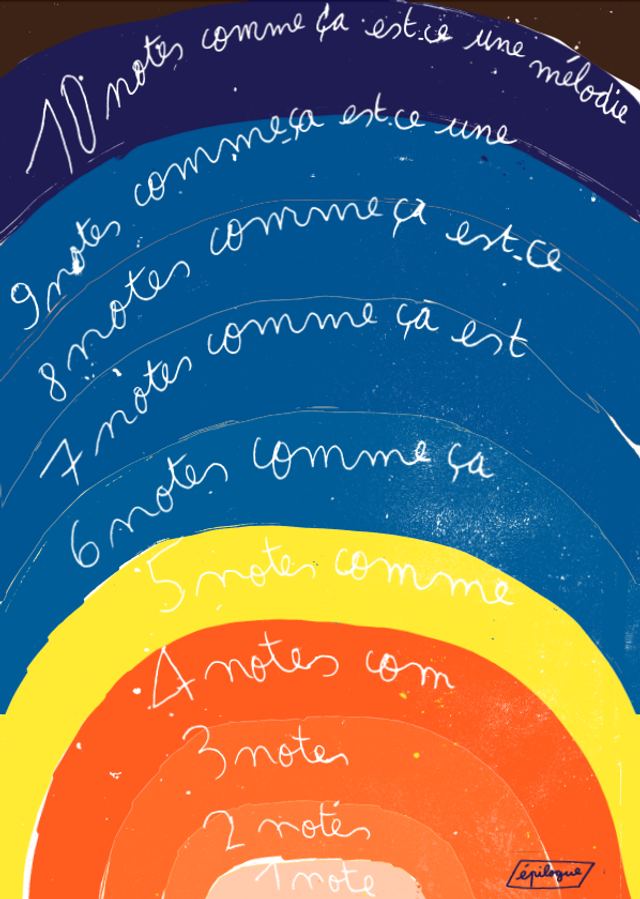 10 notes comme ça est-ce une mélodie
9 notes comme ça est-ce une
8 notes comme ça est-ce
7 notes comme ça est
6 notes comme ça
5 notes comme
4 notes com
3 notes
2 notes
1 note
épilogue